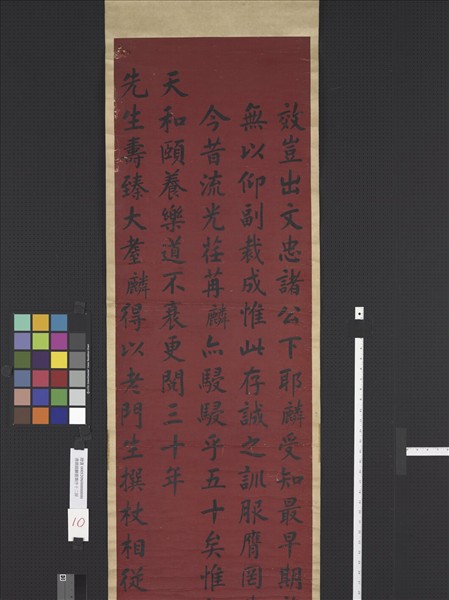 效豈出文忠諸公下耶麟受知最早期
無以仰副裁成惟此存誠之訓服膺罔
今昔流光荏苒麟亦駸駸乎五十矣惟
天和頤養樂道不衰更閱三十年
先生壽臻大耋麟得以老門生撰杖相從
10